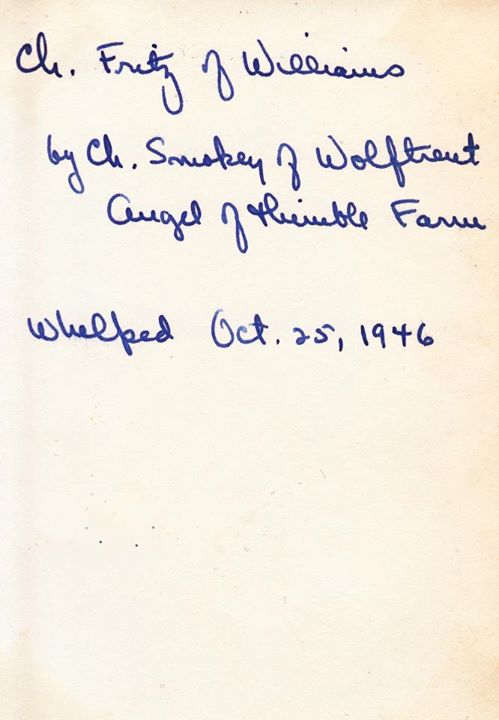 Ch. Fritz of Williams
by Ch. Smokey of Wolftrent
Angel of Thimble Farm
Whelped Oct. 25, 1946